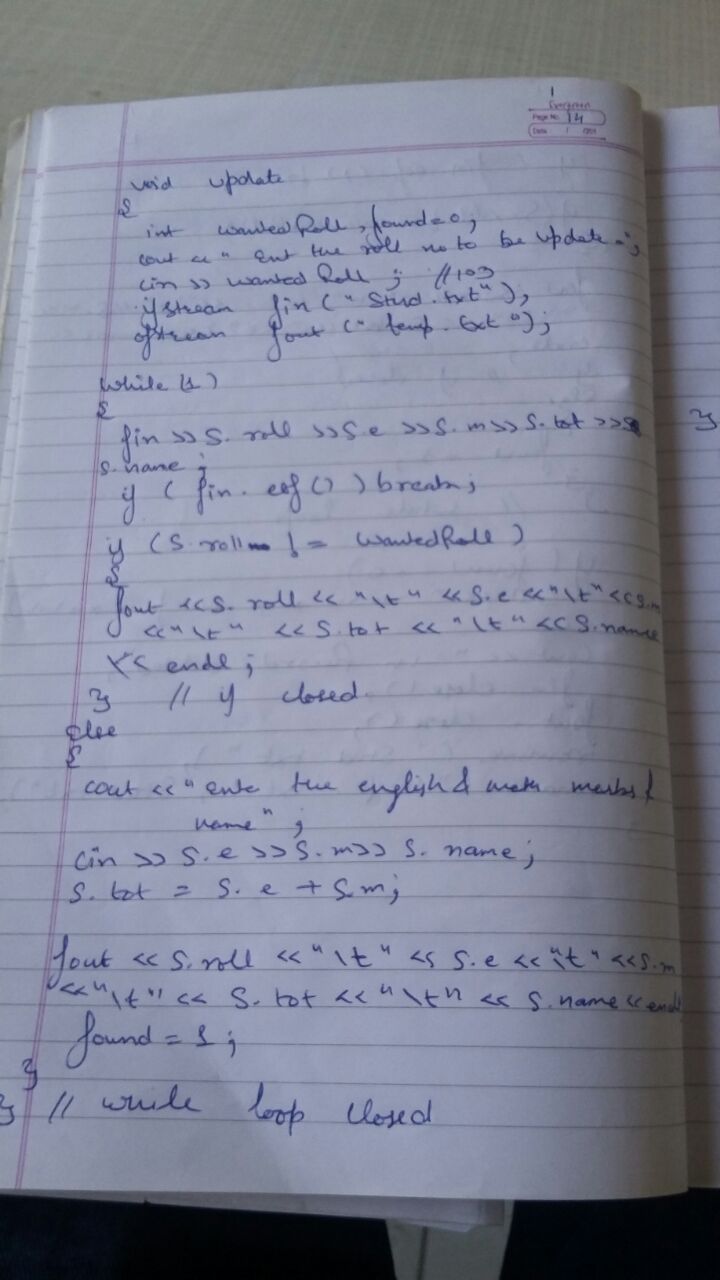 1
Evergreen
Page No. 14
Date / /201
void update
{
int wantedRoll, found=0;
cout << " Ent the roll no to be update = ";
cin >> wantedRoll ; //103
ifstream fin (" Stud.txt");
ofstream fout (" temp.txt");
while (1)
{
fin >> S.roll >> S.e >> S.m >> S.tot >>
S.name ;
if ( fin.eof () ) break;
if (S.roll != wantedRoll )
{
fout << S.roll << "\t" << S.e << "\t" << S.m
<< "\t" << S.tot << "\t" << S.name
<< endl ;
} // if closed
else
{
cout << " ente the english & math marks &
name" ;
cin >> S.e >> S.m >> S.name;
S.tot = S.e + S.m;
fout << S.roll << "\t" << S.e << "\t" << S.m
<< "\t" << S.tot << "\t" << S.name << endl
found = 1 ;
}
} // while loop closed
}